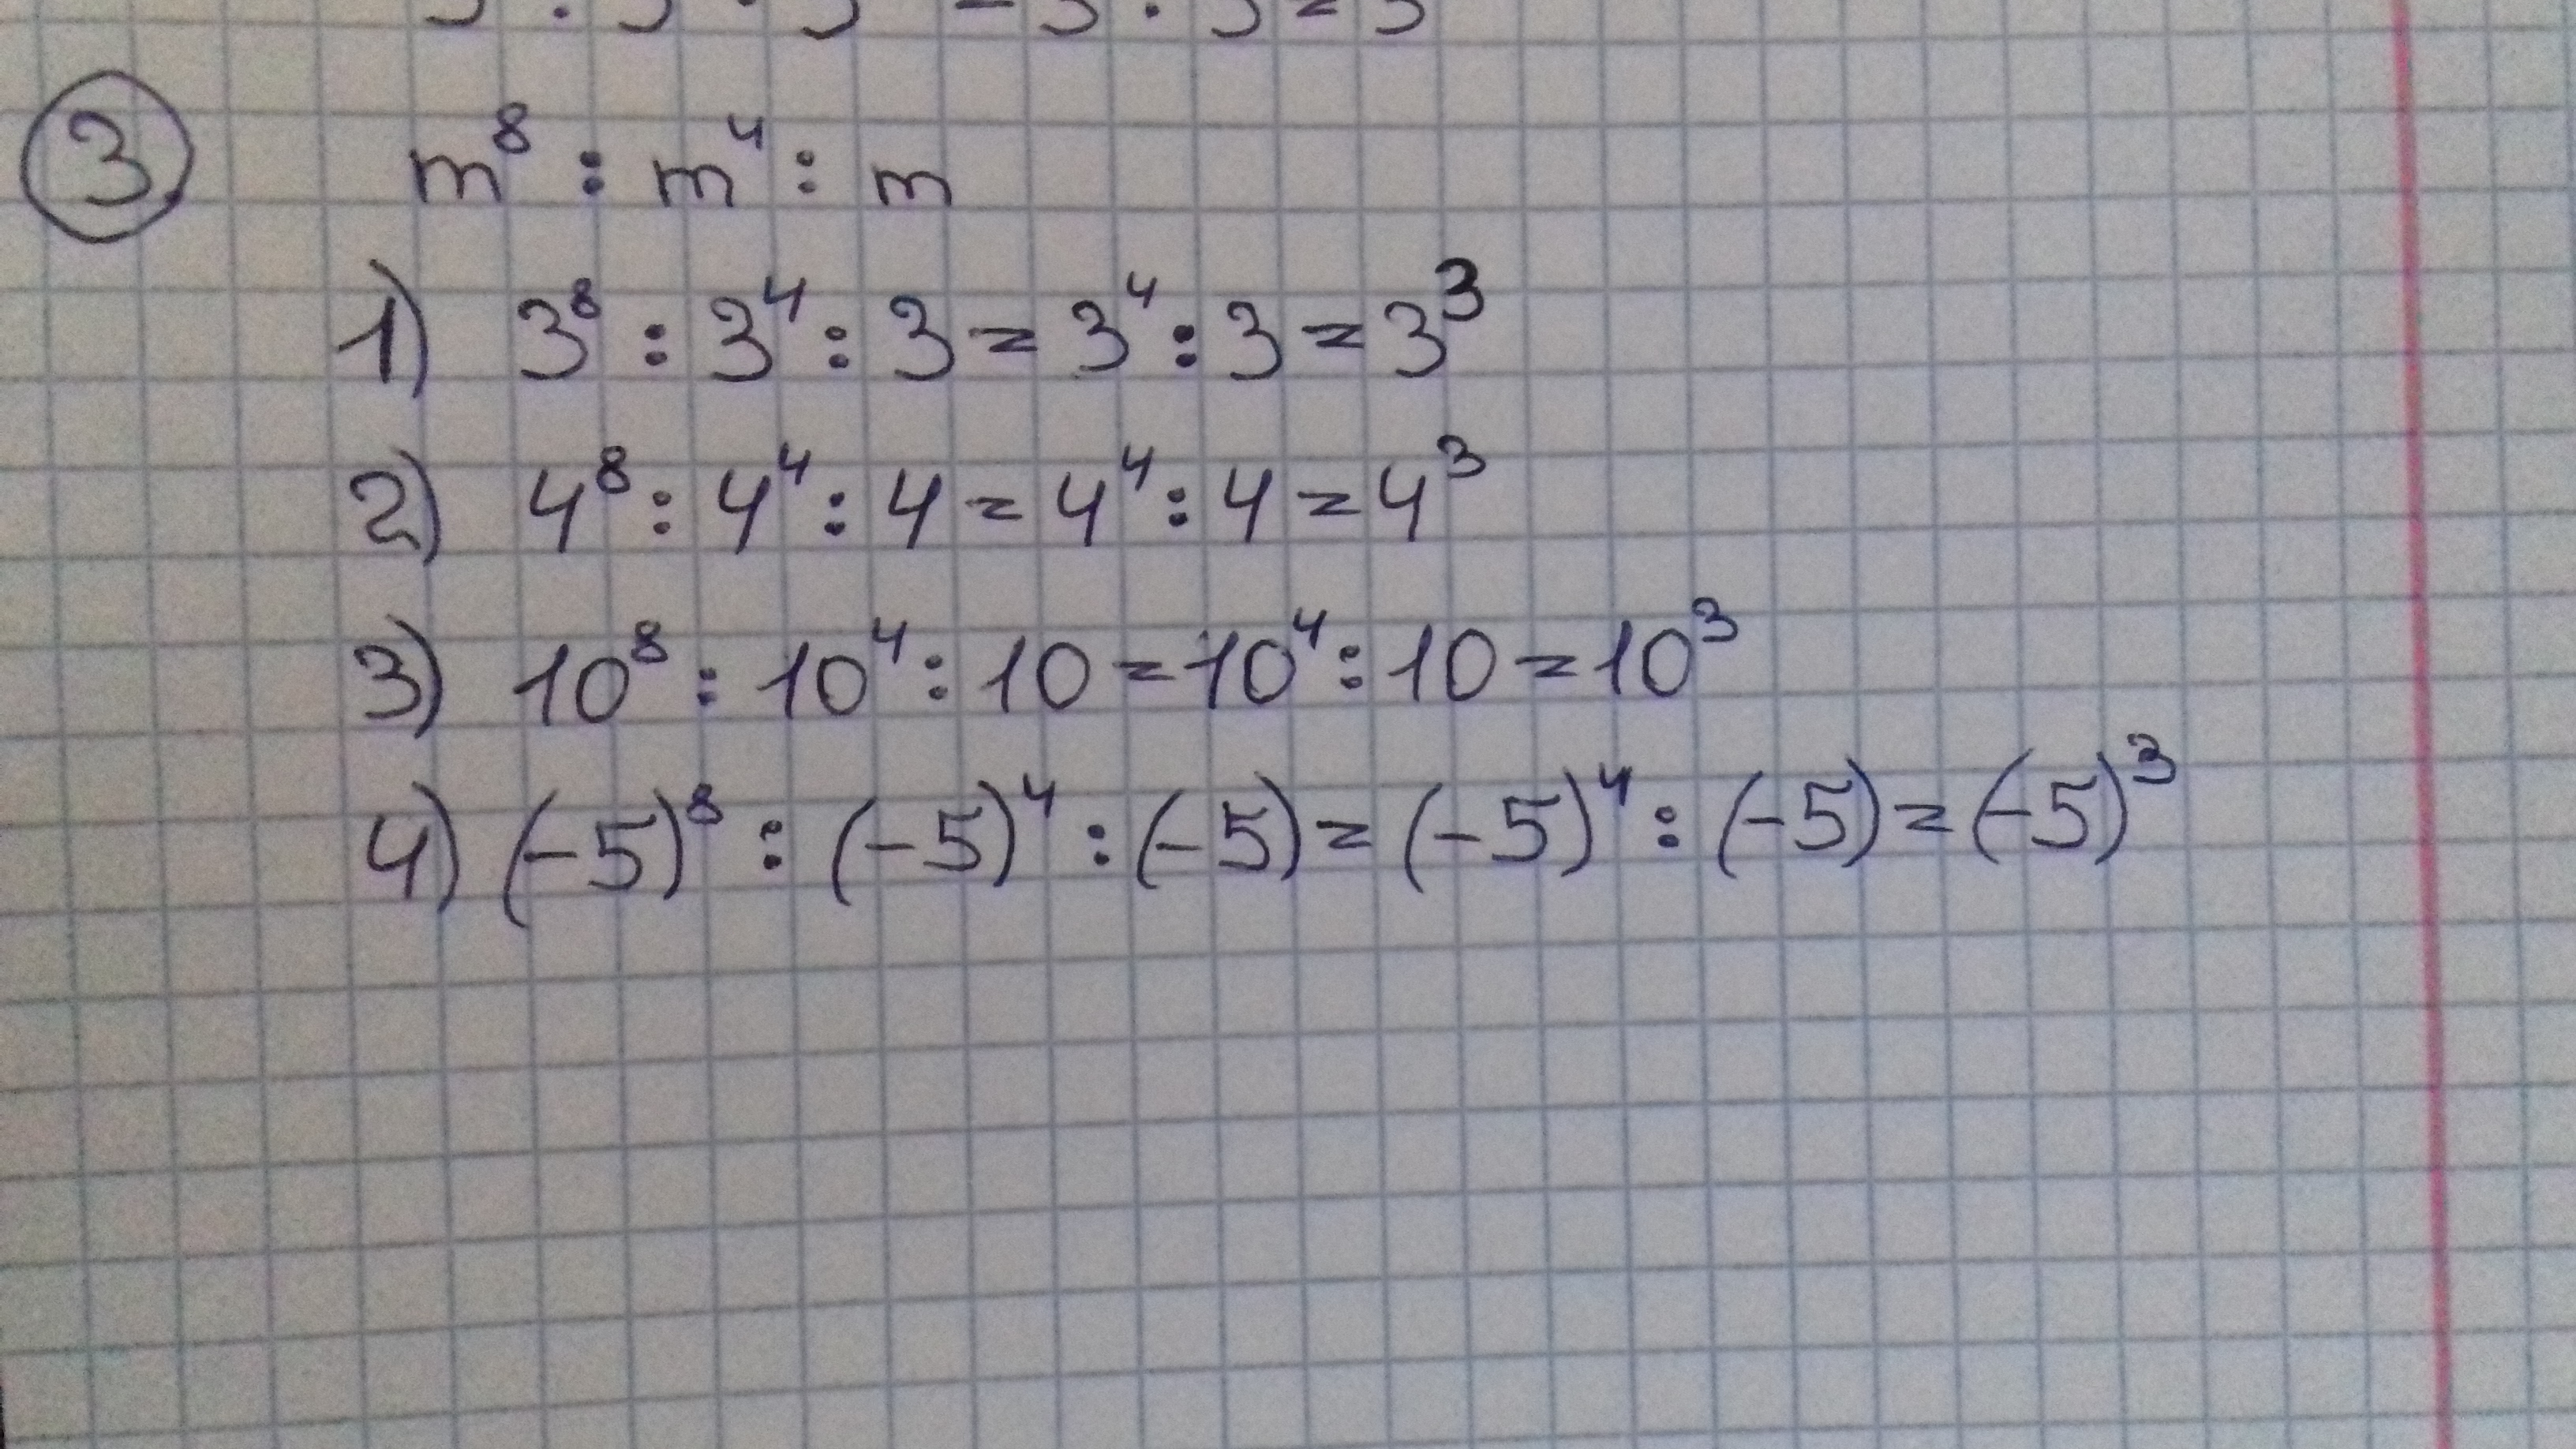 ③ m⁸ : m⁴ : m
1) 3⁸ : 3⁴ : 3 = 3⁴ : 3 = 3³
2) 4⁸ : 4⁴ : 4 = 4⁴ : 4 = 4³
3) 10⁸ : 10⁴ : 10 = 10⁴ : 10 = 10³
4) (-5)⁸ : (-5)⁴ : (-5) = (-5)⁴ : (-5) = (-5)³